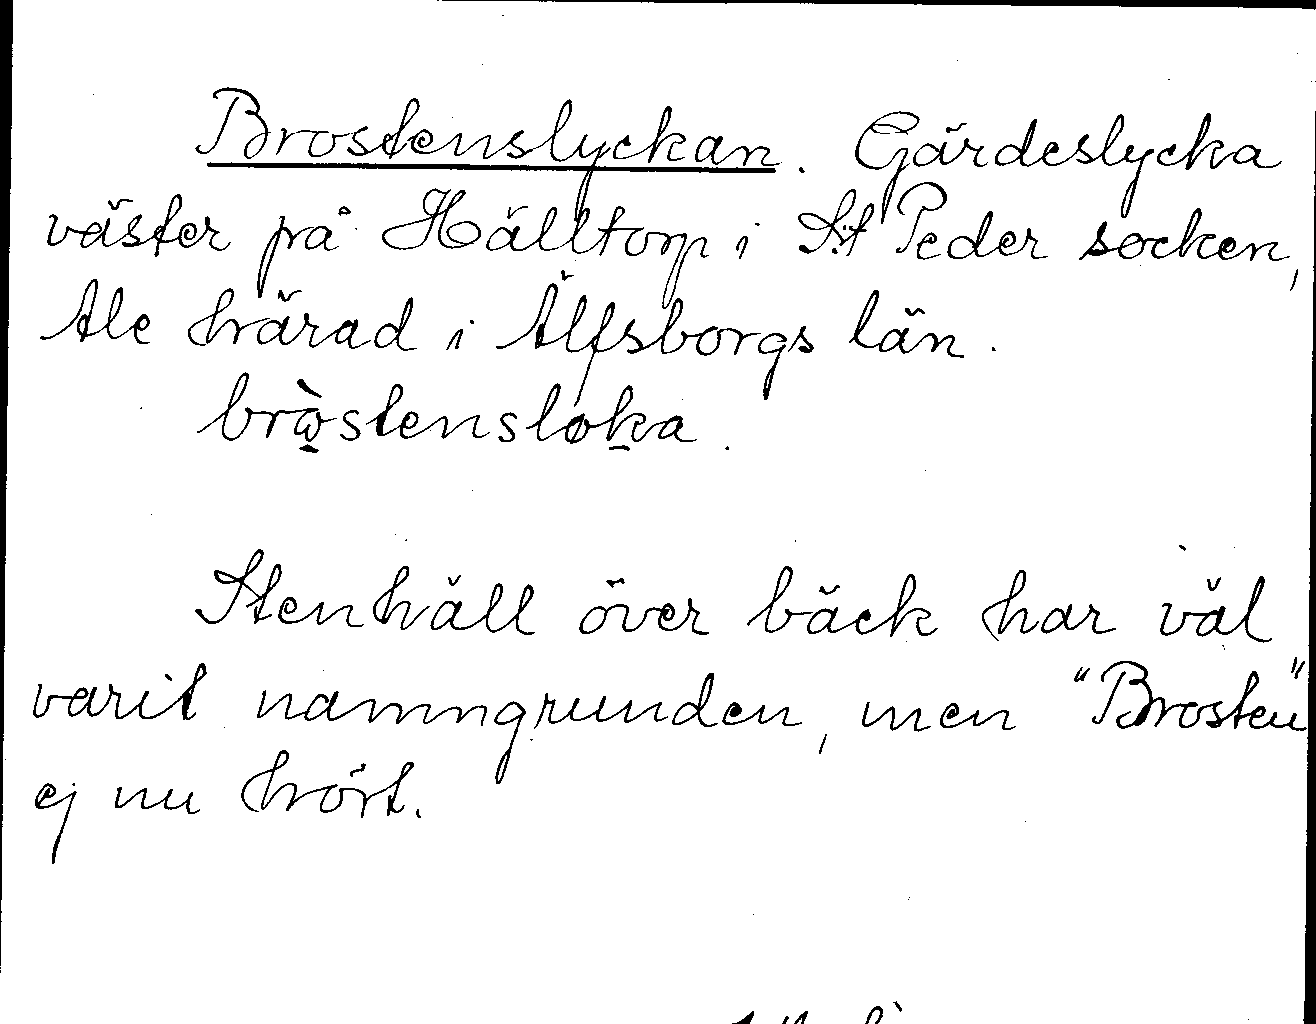 Brostenslyckan. Gärdeslycka
väster på Hälltorp i S:t Peder socken,
Ale härad i Älfsborgs län.
bròstensløka.
Stenhäll över bäck har väl
varit namngrunden, men "Brosten"
ej nu hört.